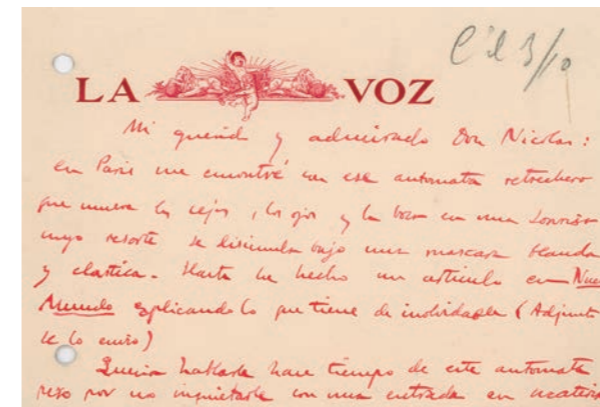 C'il 3/10
LA VOZ
Mi querido y admirado Don Nicolas:
en Paris me encontré con ese automata retrechero
que mueve las cejas, los ojos y la boca en una sonrisa
cuyo resorte se disimula bajo una mascara blanda
y elastica. Hasta he hecho un articulo en Nuevo
Mundo explicando lo que tiene de inolvidable (Adjunto
se lo envio)
Queria hablarle hace tiempo de este automata
pero por no inquietarle con una entrada en materia